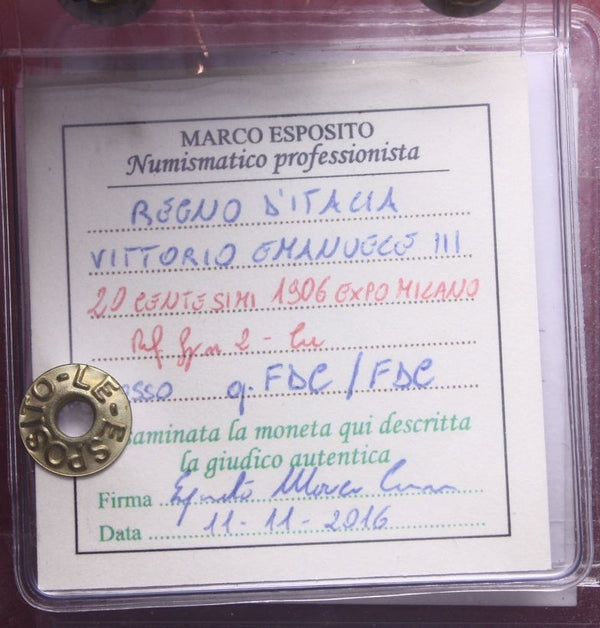 MARCO ESPOSITO
Numismatico professionista
REGNO D'ITALIA
VITTORIO EMANUELE III
20 CENTESIMI 1906 EXPO MILANO
Rif 2 - Cu
sso q.FDC/FDC
aminata la moneta qui descritta
la giudico autentica
Firma Esposito Marco
Data 11-11-2016
ESPOSITO-LE-